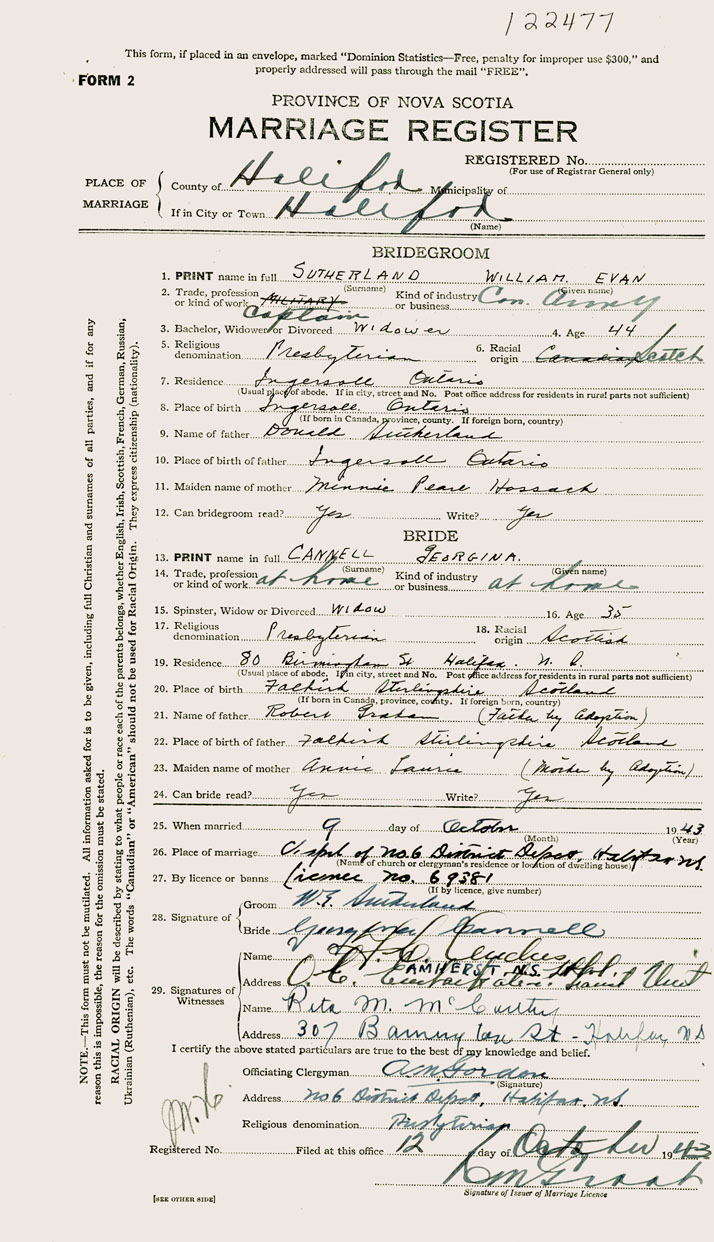 122477
This form, if placed in an envelope, marked "Dominion Statistics—Free, penalty for improper use $300," and
properly addressed will pass through the mail "FREE".
FORM 2
PROVINCE OF NOVA SCOTIA
MARRIAGE REGISTER
REGISTERED No.
(For use of Registrar General only)
PLACE OF MARRIAGE
County of Halifax Municipality of
If in City or Town Halifax
(Name)
BRIDEGROOM
1. PRINT name in full SUTHERLAND WILLIAM EVAN
(Surname) (Given name)
2. Trade, profession or kind of work MILITARY Captain Kind of industry or business Can. Army
3. Bachelor, Widower or Divorced Widower 4. Age 44
5. Religious denomination Presbyterian 6. Racial origin Canadian Scotch
7. Residence Ingersoll Ontario
(Usual place of abode. If in city, street and No. Post office address for residents in rural parts not sufficient)
8. Place of birth Ingersoll Ontario
(If born in Canada, province, county. If foreign born, country)
9. Name of father Donald Sutherland
10. Place of birth of father Ingersoll Ontario
11. Maiden name of mother Minnie Pearl Hossack
12. Can bridegroom read? Yes Write? Yes
BRIDE
13. PRINT name in full CANNELL GEORGINA.
(Surname) (Given name)
14. Trade, profession or kind of work at home Kind of industry or business at home
15. Spinster, Widow or Divorced Widow 16. Age 35
17. Religious denomination Presbyterian 18. Racial origin Scottish
19. Residence 80 Birmingham St Halifax. N. S.
(Usual place of abode. If in city, street and No. Post office address for residents in rural parts not sufficient)
20. Place of birth Falkirk Stirlingshire Scotland
(If born in Canada, province, county. If foreign born, country)
21. Name of father Robert Graham (Father by Adoption)
22. Place of birth of father Falkirk Stirlingshire Scotland
23. Maiden name of mother Annie Laurie (Mother by Adoption)
24. Can bride read? Yes Write? Yes
25. When married 9 day of October 1943
(Month) (Year)
26. Place of marriage Chapel of No. 6 District Depot, Halifax N.S.
(Name of church or clergyman's residence or location of dwelling house)
27. By licence or banns Licence No. 69381
(If by licence, give number)
28. Signature of
Groom W. E. Sutherland
Bride Georgina Cannell
29. Signatures of Witnesses
Name
Address AMHERST, N.S. Transit Unit
Name Rita M. McCarthy
Address 307 Barrington St - Halifax NS
I certify the above stated particulars are true to the best of my knowledge and belief.
Officiating Clergyman A M Gordon
(Signature)
Address No 6 District Depot, Halifax. N.S.
Religious denomination Presbyterian
Registered No. Filed at this office 12 day of October 1943
Signature of Issuer of Marriage Licence
[SEE OTHER SIDE]
NOTE.—This form must not be mutilated. All information asked for is to be given, including full Christian and surnames of all parties, and if for any
reason this is impossible, the reason for the omission must be stated.
RACIAL ORIGIN will be described by stating to what people or race each of the parents belongs, whether English, Irish, Scottish, French, German, Russian,
Ukrainian (Ruthenian), etc. The words "Canadian" or "American" should not be used for Racial Origin. They express citizenship (nationality).